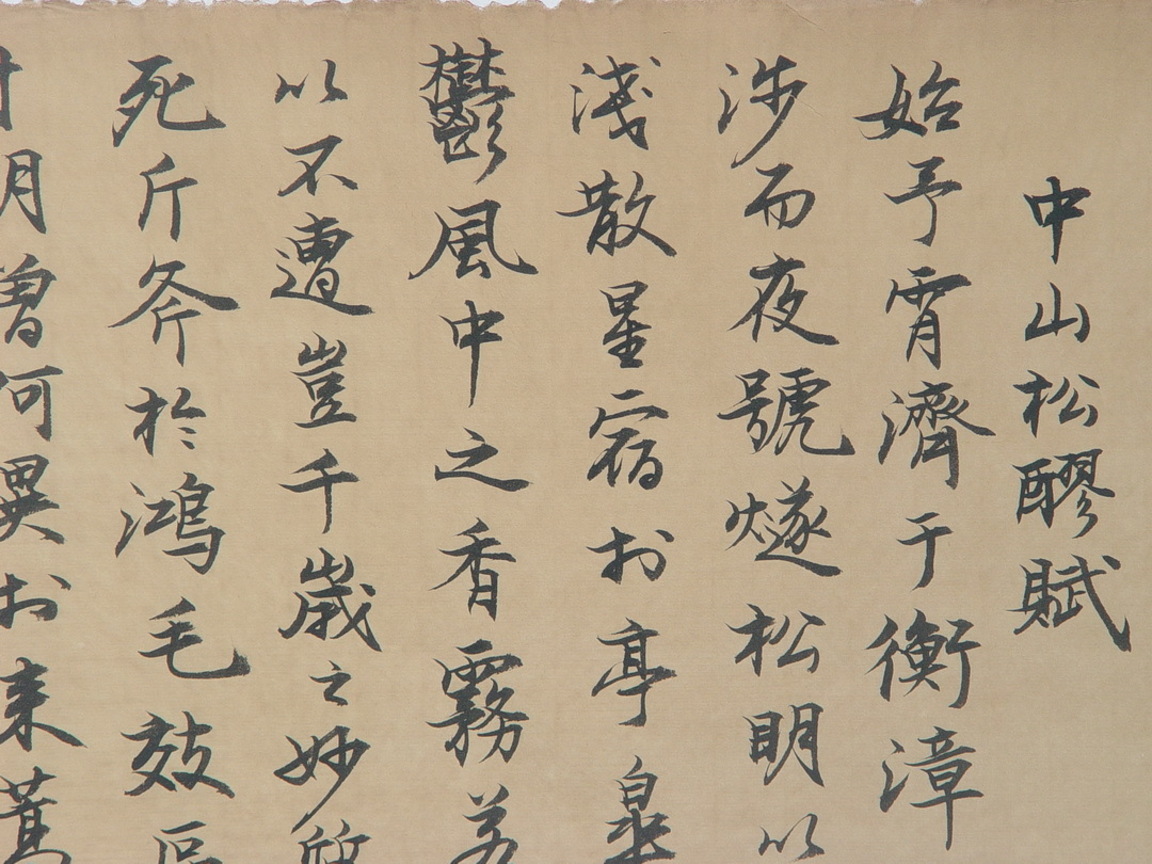 中山松醪賦
始予宵濟于衡漳
涉而夜號燧松明以
淺散星宿於亭皋
鬱風中之香霧若
以不遭豈千歲之妙質
死斤斧於鴻毛效區
寸明曾何異於束蒿